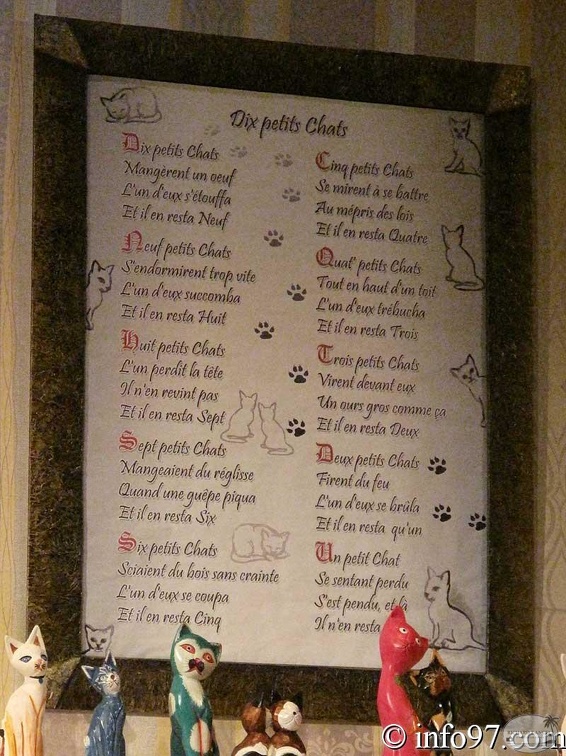 Dix petits Chats
Dix petits Chats
Mangèrent un oeuf
L'un d'eux s'étouffa
Et il en resta Neuf
Neuf petits Chats
S'endormirent trop vite
L'un d'eux succomba
Et il en resta Huit
Huit petits Chats
L'un perdit la tête
Il n'en revint pas
Et il en resta Sept
Sept petits Chats
Mangeaient du réglisse
Quand une guêpe piqua
Et il en resta Six
Six petits Chats
Sciaient du bois sans crainte
L'un d'eux se coupa
Et il en resta Cinq
Cinq petits Chats
Se mirent à se battre
Au mépris des lois
Et il en resta Quatre
Quat' petits Chats
Tout en haut d'un toit
L'un d'eux trébucha
Et il en resta Trois
Trois petits Chats
Virent devant eux
Un ours gros comme ça
Et il en resta Deux
Deux petits Chats
Firent du feu
L'un d'eux se brûla
Et il en resta qu'un
Un petit Chat
Se sentant perdu
S'est pendu, et là
Il n'en resta
© info97.com